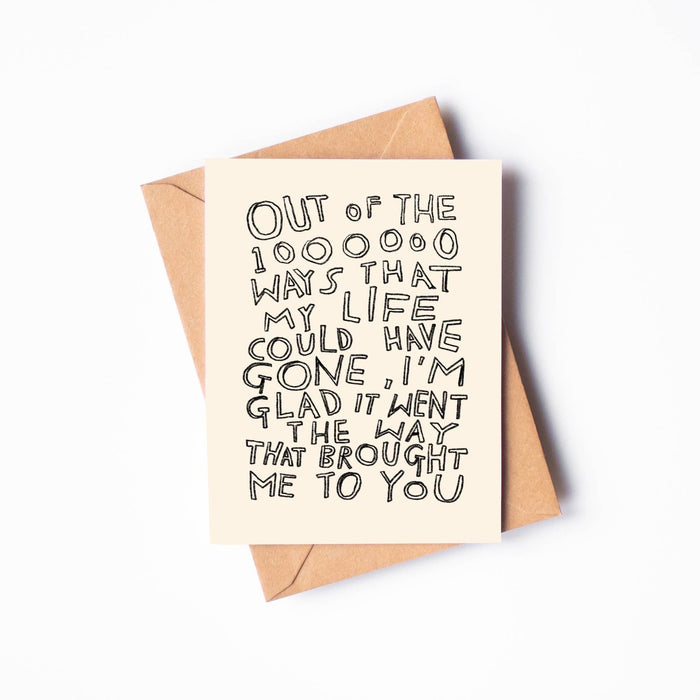 OUT OF THE
1000000
WAYS THAT
MY LIFE
COULD HAVE
GONE, I'M
GLAD IT WENT
THE WAY
THAT BROUGHT
ME TO YOU